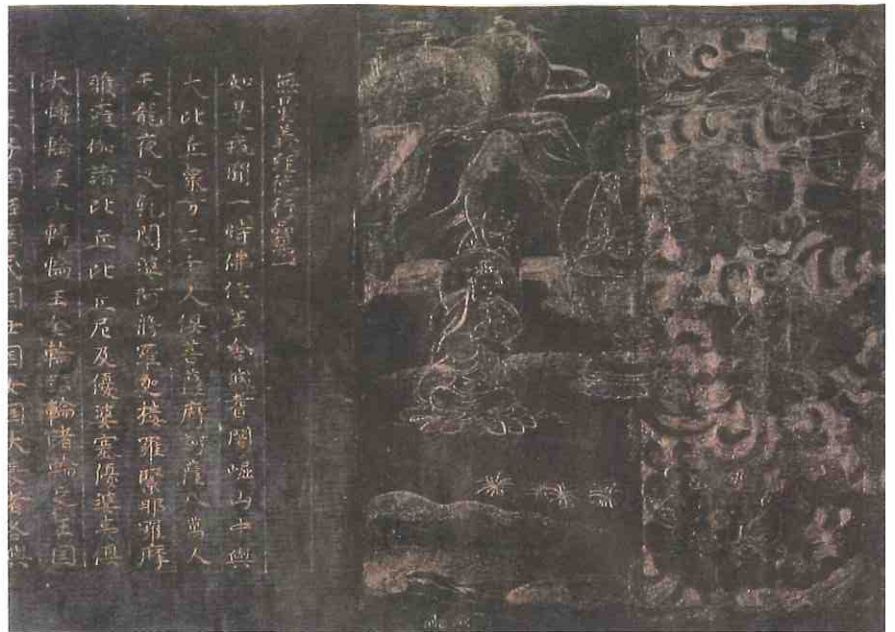 無量義經德行品第一
如是我聞一時佛住王舍城耆闍崛山中與
大比丘衆万二千人俱菩薩摩訶薩八萬人
天龍夜叉乾闥婆阿脩羅迦樓羅緊那羅摩
睺羅伽諸比丘比丘尼及優婆塞優婆夷俱
大轉輪王小轉輪王金輪銀輪諸輪之王国
王王子国臣国民国士国女国大長者各與